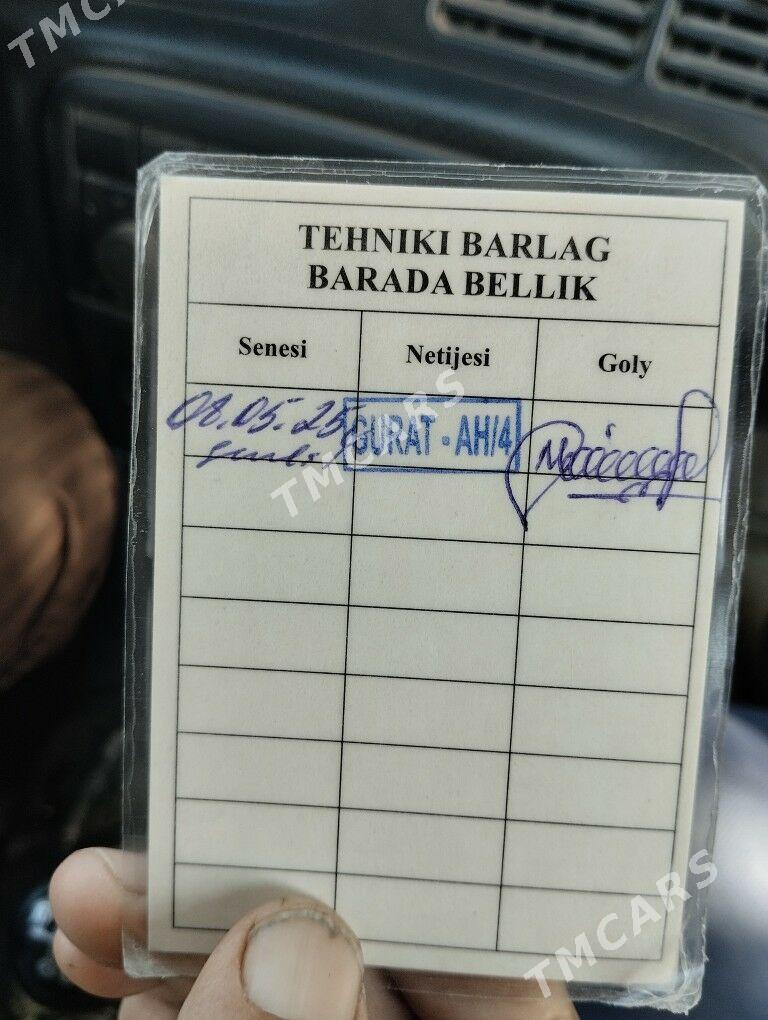 TMCARS
TEHNIKI BARLAG
BARADA BELLIK
Senesi Netijesi Goly
08.05.25 GURAT - AH/4
TMCARS
TMCARS